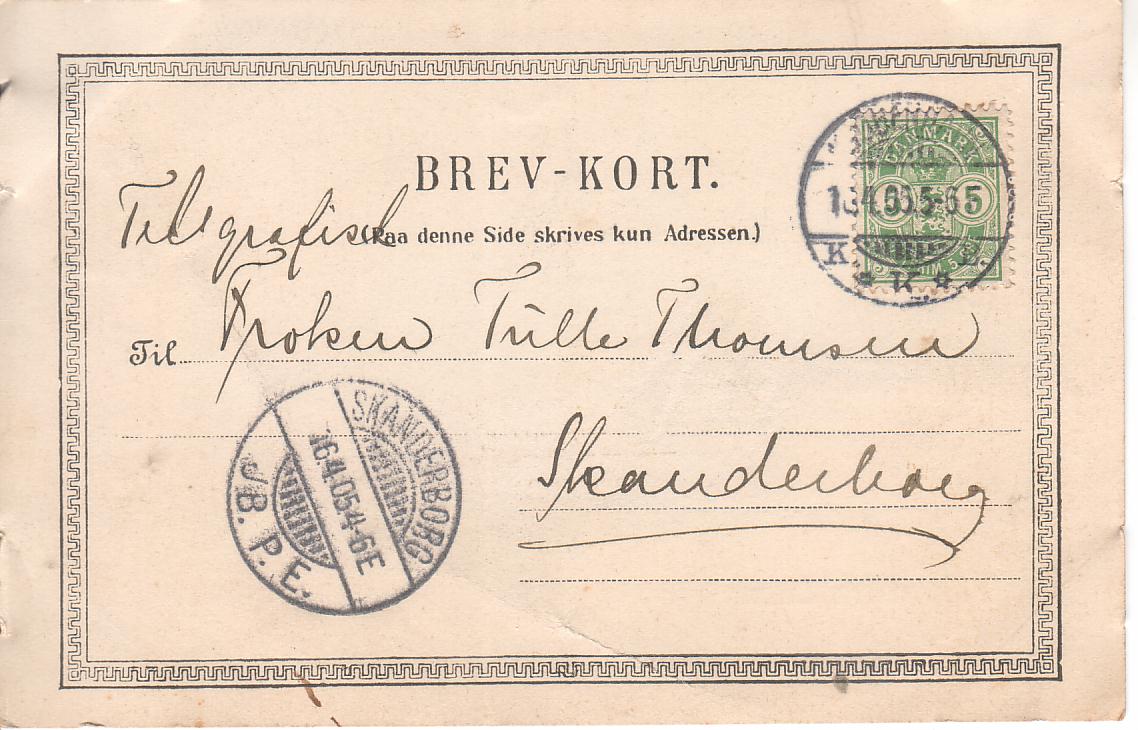 BREV-KORT.
Telegrafisk
(Paa denne Side skrives kun Adressen.)
Til Frøken Tulle Thomsen
Skanderborg
DANMARK
5 5
K
K.
SKANDERBORG
16.4.05 4-6E
JB. P. E.